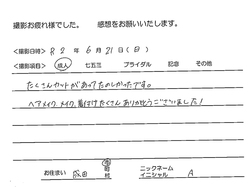 撮影お疲れ様でした。 感想をお願いいたします。
＜撮影日時＞ R2年6月21日(日)
＜撮影項目＞ 成人 七五三 ブライダル 記念 その他
たくさんカットがあってたのしかったです。
ヘアメイク、メイク、着付けたくさんありがとうございました!
お住まい 成田 市 町 村 ニックネーム イニシャル A